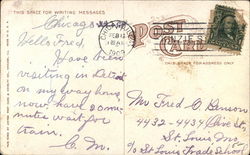 THIS SPACE FOR WRITING MESSAGES
POST
CARD
THIS SPACE FOR ADDRESS ONLY
CHICAGO
FEB 12
1909
Chicago
Hello Fred,
Have been
visiting in Detroit
on my way home
now. Have a one
minute wait for
train.
C. M.
Mr Fred C Benson
4432-4434 Olive St,
St. Louis, Mo.
c/o St Louis Trade School